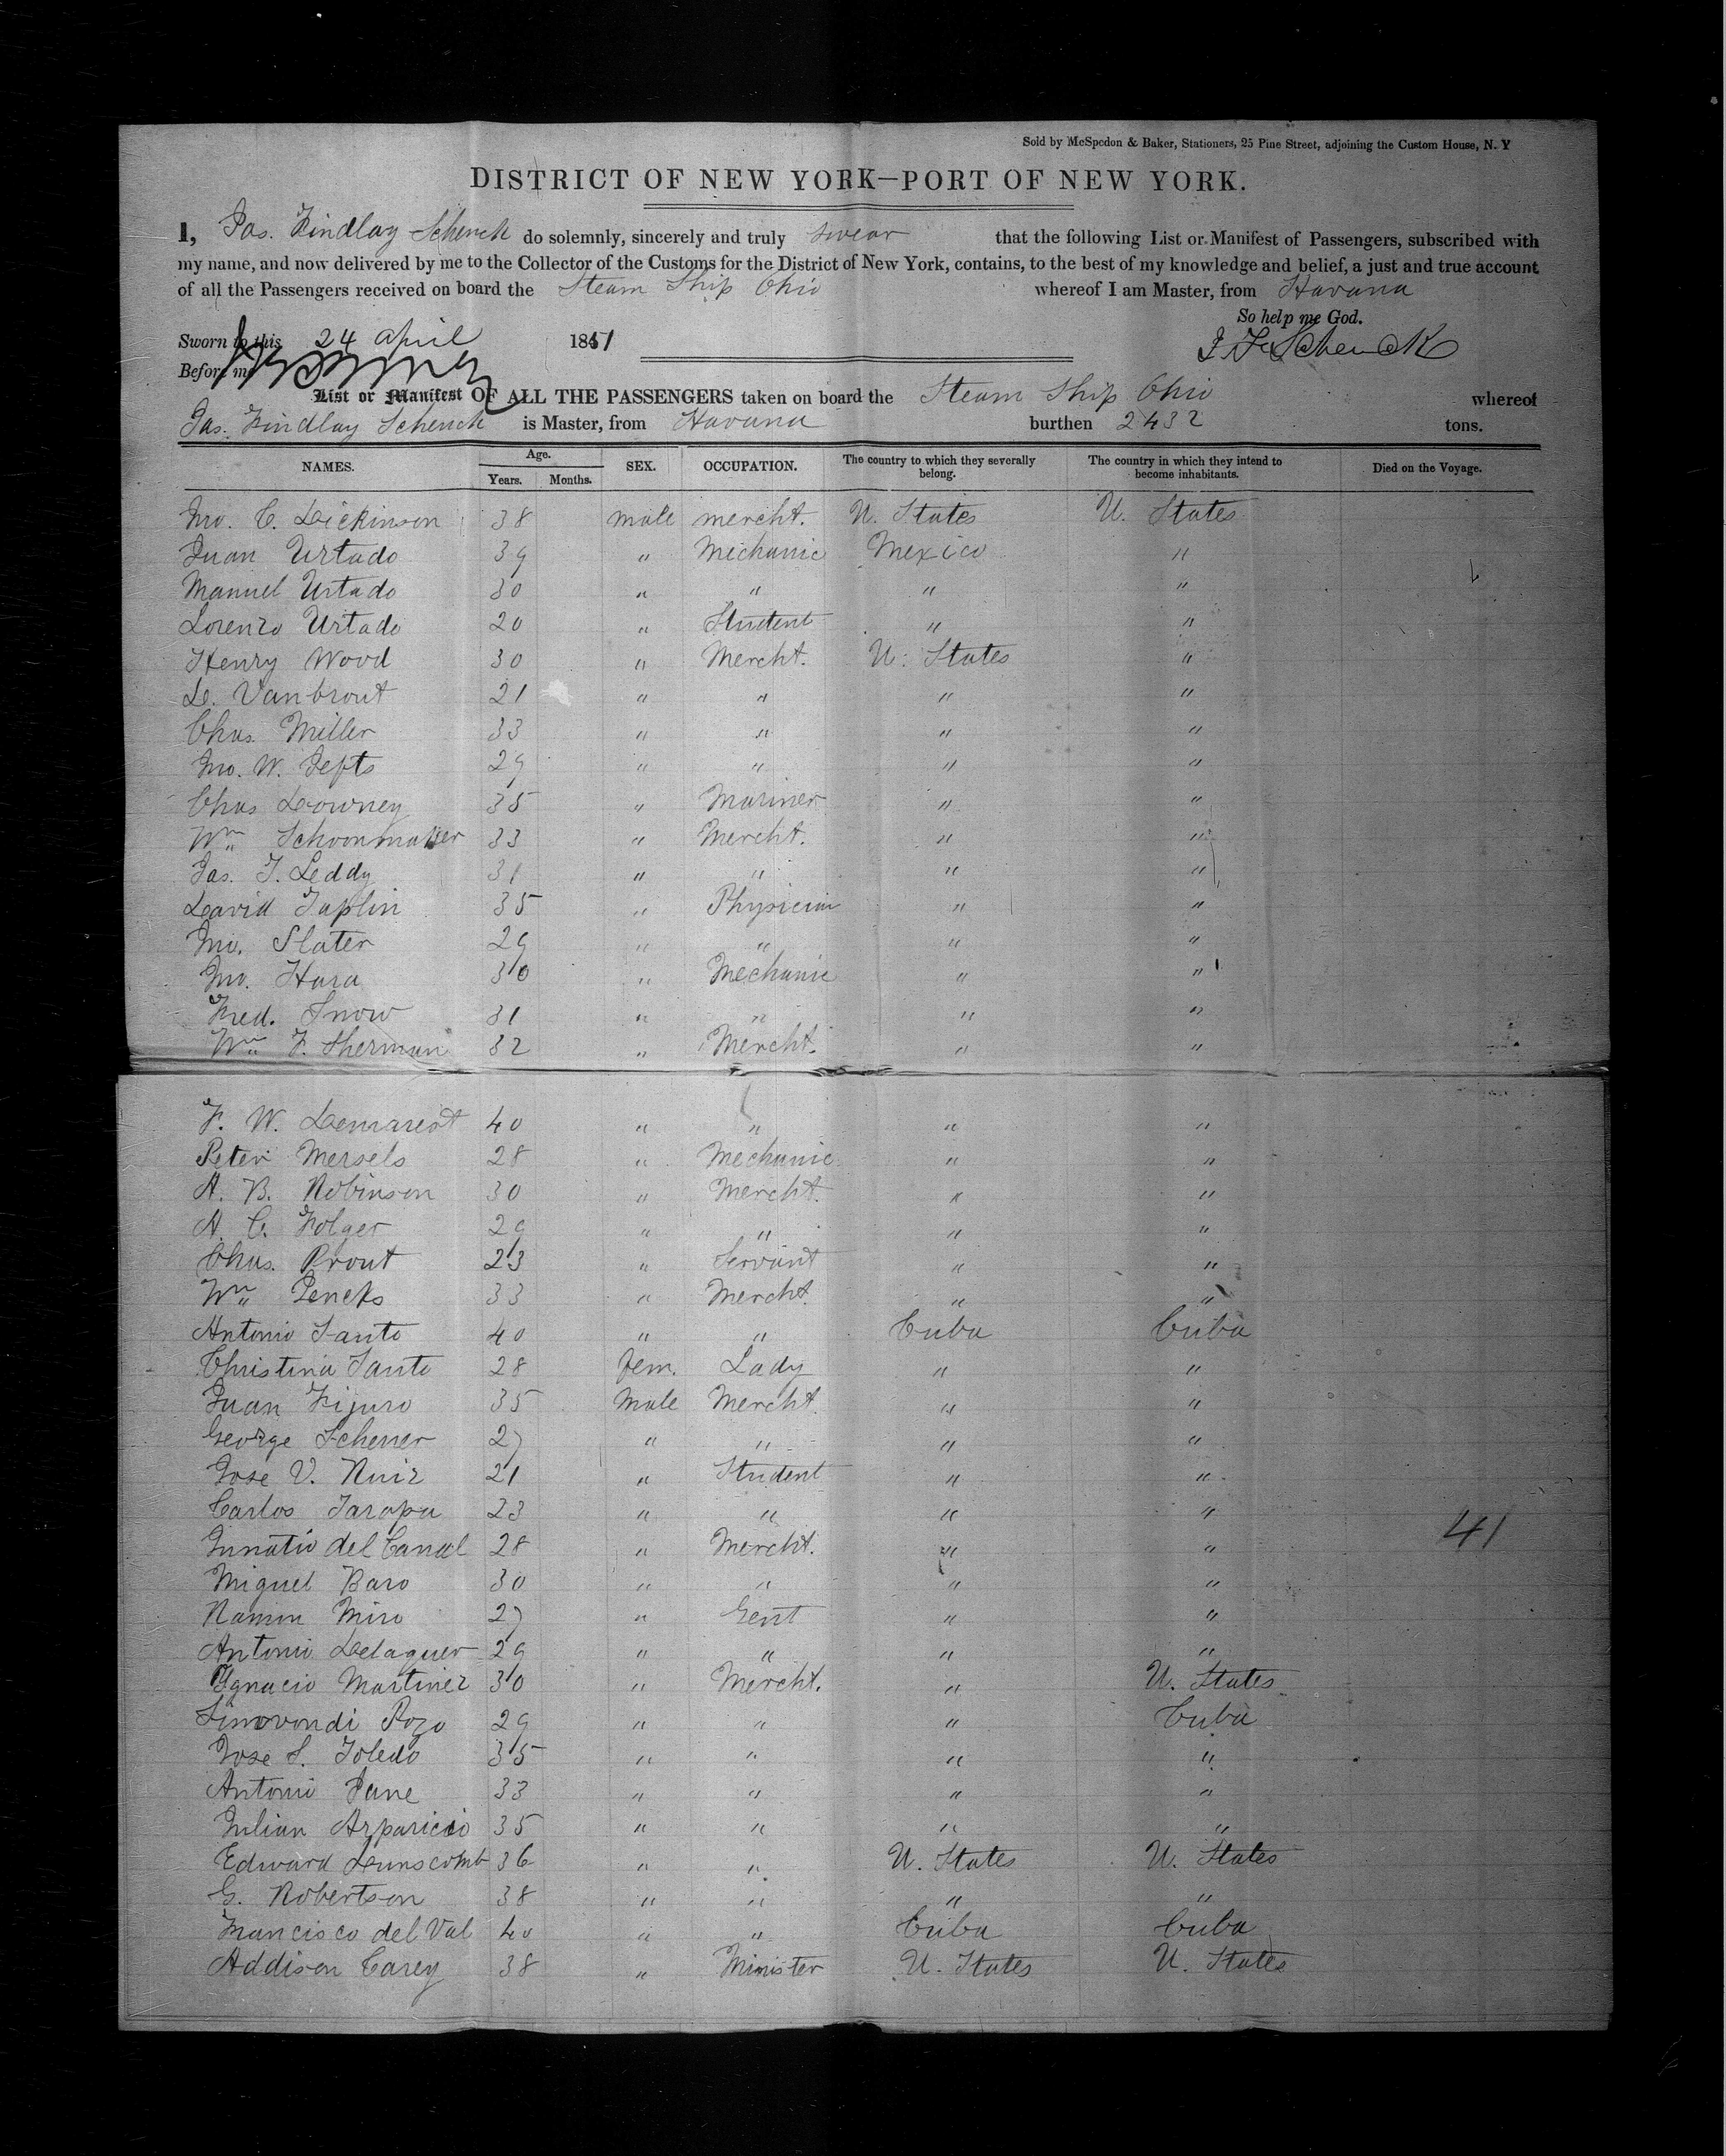 Sold by McSpedon & Baker, Stationers, 25 Pine Street, adjoining the Custom House, N. Y
DISTRICT OF NEW YORK—PORT OF NEW YORK.
I, Jas. Findlay Schenck do solemnly, sincerely and truly swear that the following List or Manifest of Passengers, subscribed with
my name, and now delivered by me to the Collector of the Customs for the District of New York, contains, to the best of my knowledge and belief, a just and true account
of all the Passengers received on board the Steam Ship Ohio whereof I am Master, from Havana
So help me God.
Sworn to this 24 April 1851 J. F. Schenck
Before me
List or Manifest OF ALL THE PASSENGERS taken on board the Steam Ship Ohio whereof
Jas. Findlay Schenck is Master, from Havana burthen 2432 tons.
NAMES. Age. Years. Months. SEX. OCCUPATION. The country to which they severally belong. The country in which they intend to become inhabitants. Died on the Voyage.
Jno. C. Dickinson 38 male mercht. U. States U. States
Juan Urtado 39 " Mechanic Mexico "
Manuel Urtado 30 " " " "
Lorenzo Urtado 20 " Student " "
Henry Wood 30 " Mercht. U. States "
D. Vanbrout 21 " " " "
Chas. Miller 33 " " " "
Jno. W. Jefts 29 " " " "
Chas Downey 35 " Mariner " "
Wm Schoonmaker 33 " Mercht. " "
Jas. T. Leddy 31 " " " "
David Taplin 35 " Physician " "
Jno. Slater 29 " " " "
Jno. Hara 30 " Mechanic " "
Fred. Snow 31 " " " "
Wm F. Sherman 32 " Mercht. " "
F. W. Demarest 40 " " " "
Peter Mersels 28 " Mechanic " "
A. B. Robinson 30 " Mercht. " "
A. C. Folger 29 " " " "
Chas. Prout 23 " Servant " "
Wm Jencks 33 " Mercht. " "
Antonio Santo 40 " " Cuba Cuba
Christina Santo 28 fem. Lady " "
Juan Fijuro 35 Male Mercht. " "
George Scherrer 27 " " " "
Jose V. Ruiz 21 " Student " "
Carlos Tarapa 23 " " " "
Innatio del Canal 28 " Mercht. " " 41
Miguel Baro 30 " " " "
Ramon Miro 27 " Gent " "
Antonio Delaguer 29 " " " "
Ygnacio Martinez 30 " Mercht. " U. States
Simovondi Pozo 29 " " " Cuba
Jose S. Toledo 35 " " " "
Antonio Jane 33 " " " "
Julian Arparicio 35 " " " "
Edward Dunscomb 36 " " U. States U. States
G. Robertson 38 " " " "
Francisco del Val 40 " " Cuba Cuba
Addison Carey 38 " Minister U. States U. States